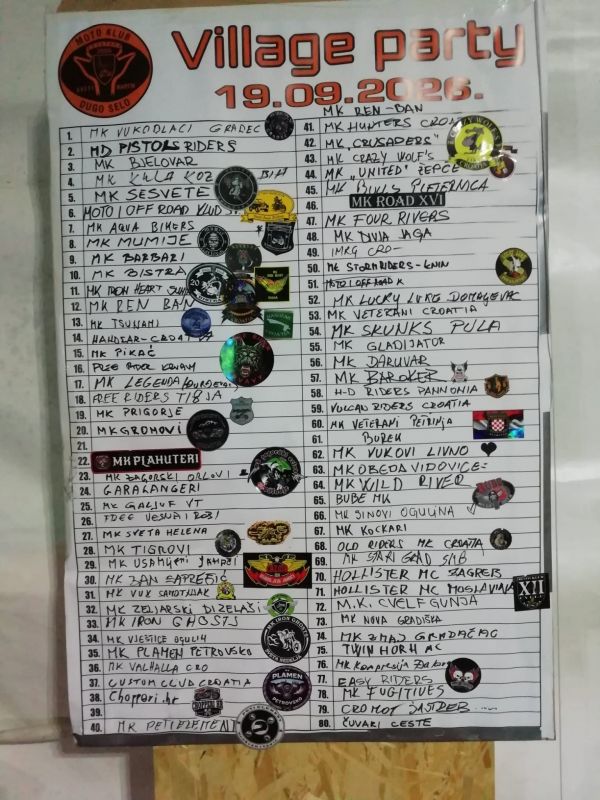 MOTO KLUB
DUGO SELO
Village party
19.09.2026.
1. MK VUKODLACI GRADEC
2. MD PISTOLS RIDERS
3. MK BJELOVAR
4. MK KULA KOZ BIH
5. MK SESVETE
6. MOTO I OFF ROAD KLUB
7. MK AQUA BIKERS
8. MK MUMIJE
9. MK BARBARI
10. MK BISTRA
11. MK IRON HEART
12. MK REN BAN
13. MK TSUNAMI
14. HANDŽAR-CROATIA
15. MK PIKAČ
16. FREE RIDER
17. MK LEGENDA
18. FREE RIDERS
19. MK PRIGORJE
20. MK GROMOVI
21.
22. MK PLAHUTERI
23. MK ZAGORSKI ORLOVI
24. GARAŽANGERI
25. MK GALJUF VT
26.
27. MK SVETA HELENA
28. MK TIGROVI
29. MK USAMLJENI JAHAČI
30. MK BAN ZAPREŠIĆ
31. MK VUK SAMOTNJAK
32. MK ZELJARSKI DIZELAŠI
33. MK IRON GHOSTS
34. MK VJEŠTICE OGULIN
35. MK PLAMEN PETROVSKO
36. MK VALHALLA CRO
37. CUSTOM CLUB CROATIA
38. Choppari.hr
39.
40. MK PETI ELEMENT
MK REN-BAN
41. MK HUNTERS CROATIA
42. MK „CRUSADERS"
43. MK CRAZY WOLF'S
44. MK „UNITED" ŽEPČE
45. MK BULLS PLETERNICA
46. MK ROAD XVI
47. MK FOUR RIVERS
48. MK DIVJA JAGA
49. IMRG CRO-
50. MK STORMRIDERS-KNIN
51. MOTO I OFF ROAD K
52. MK LUCKY LUKE DOMAGOVAC
53. MK VETERANI CROATIA
54. MK SKUNKS PULA
55. MK GLADIJATOR
56. MK DARUVAR
57. MK BAROKER
58. H-D RIDERS PANNONIA
59. VULCAN RIDERS CROATIA
60. MK VETERANI PETRINJA
61. BUREK
62. MK VUKOVI LIVNO
63. MK OBEDA VIDOVICE
64. MK WILD RIVER
65. BUBE MK
66. MK SINOVI OGULINA
67. MK KOCKARI
68. OLD RIDERS MK CROATIA
69. MK STARI GRAD SMB
70. HOLLISTER MC ZAGREB
71. HOLLISTER MC MOSLAVINA
72. M.K. CVELF GUNJA
73. MK NOVA GRADIŠKA
74. MK ZMAJ GRADAČAC
75. TWIN HORN AC
76. MK Kompresija
77. EASY RIDERS
78. MK FUGITIVES
79. CROMOT JASTREB
80. ČUVARI CESTE
XII
PLAMEN
PETROVSKO